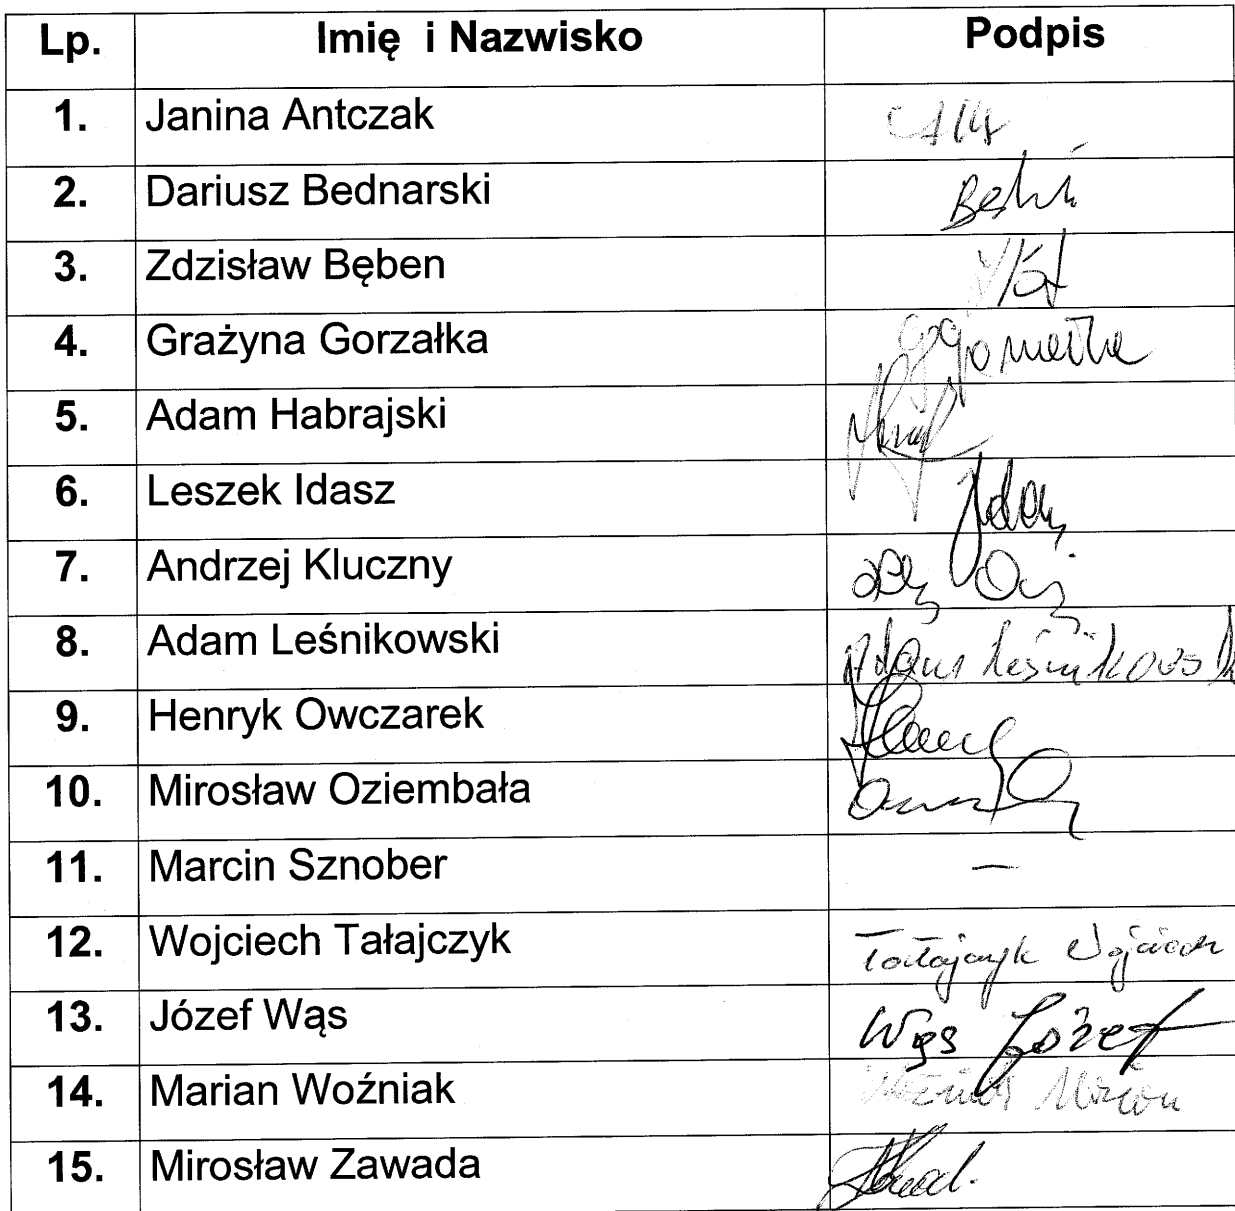 Lp. Imię i Nazwisko Podpis
1. Janina Antczak
2. Dariusz Bednarski
3. Zdzisław Bęben
4. Grażyna Gorzałka
5. Adam Habrajski
6. Leszek Idasz
7. Andrzej Kluczny
8. Adam Leśnikowski Adam Leśnikowski
9. Henryk Owczarek
10. Mirosław Oziembała
11. Marcin Sznober —
12. Wojciech Tałajczyk Tałajczyk Wojciech
13. Józef Wąs Wąs Józef
14. Marian Woźniak Woźniak Marian
15. Mirosław Zawada